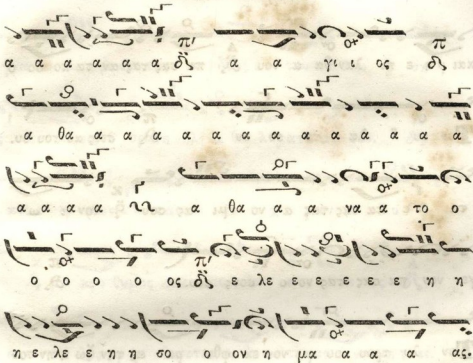 α α α α α α α πʹ δι α α γι ι ος δι π
α θα α α α α α α α α α ὰ α α α
α α α α α θα α α να α το ο
ο ο ο ο ος δι πʹ ε λε ε ε ε ε ε η η
η ε λε ε η η σο ο ον η μα α α α α α